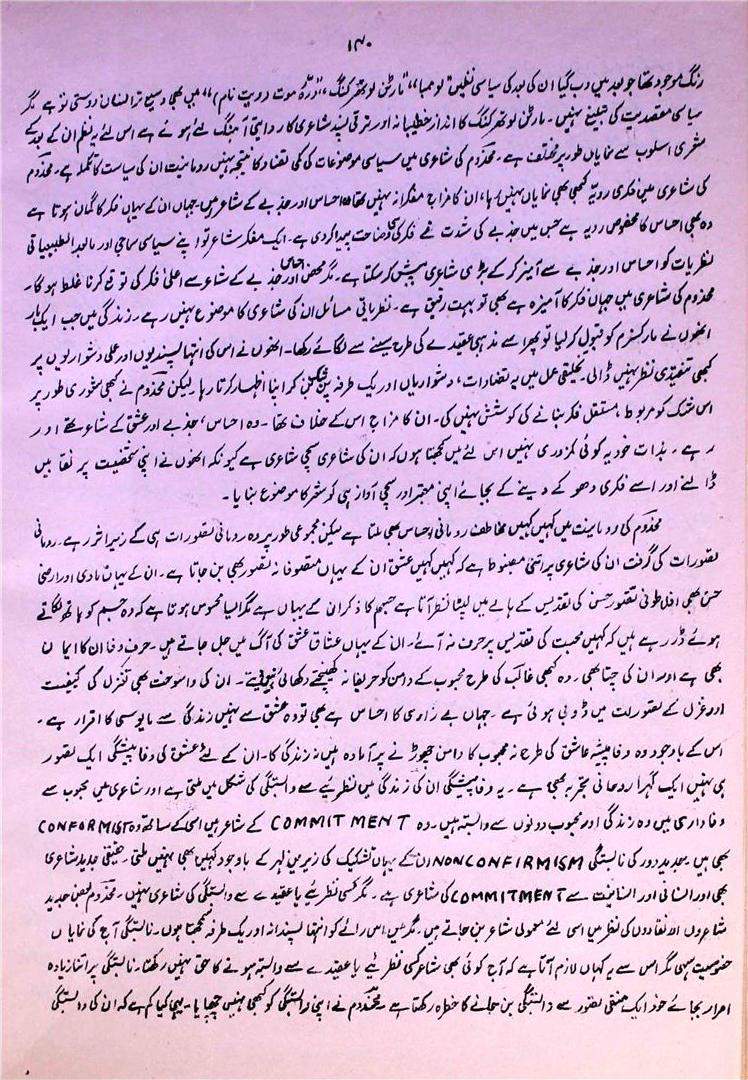 ۱۴۰
رنگ موجود تھا جو بعد میں دب گیا ان کی بعد کی سیاسی نظمیں "لومبا"، "مارٹن لوتھر کنگ"، "درّۂ موت (ویت نام)" میں بھی وسیع تر انسان دوستی تو ہے مگر
سیاسی مقصدیت کی تبلیغ نہیں۔ مارٹن لوتھر کنگ کا انداز خطیبانہ اور ترقی پسند شاعری کا روایتی آہنگ لئے ہوئے ہے اس لئے یہ نظم ان کے بعد کے
شعری اسلوب سے نمایاں طور پر مختلف ہے۔ مخدوم کی شاعری میں سیاسی موضوعات کی کمی تضاد کا نتیجہ نہیں رومانیت ان کی سیاست کا تکملہ ہے۔ مخدوم
کی شاعری میں فکری رویہ کبھی بھی نمایاں نہیں رہا، ان کا مزاج مفکرانہ نہیں تھا وہ احساس اور جذبے کے شاعر ہیں جہاں ان کے یہاں فکر کا گمان ہوتا ہے
وہ بھی احساس کا مخصوص رویہ ہے جس میں جذبے کی شدت نے فکر کی سی وضاحت پیدا کردی ہے۔ ایک مفکر شاعر تو اپنے سیاسی سماجی اور مابعد الطبیعیاتی
نظریات کو احساس اور جذبے سے آمیز کر کے بڑی شاعری پیش کر سکتا ہے۔ مگر محض احساس اور جذبے کے شاعر سے اعلیٰ فکر کی توقع کرنا غلط ہو گا۔
مخدوم کی شاعری میں جہاں فکر کا آمیزہ ہے بھی تو بہت رقیق ہے۔ نظریاتی مسائل ان کی شاعری کا موضوع نہیں رہے۔ زندگی میں جب ایک بار
انھوں نے مارکسزم کو قبول کر لیا تو پھر اسے مذہبی عقیدے کی طرح سینے سے لگائے رکھا۔ انھوں نے اس کی انتہا پسندیوں اور عملی دشواریوں پر
کبھی تنقیدی نظر نہیں ڈالی۔ تخلیقی عمل میں یہ تضادات، دشواریاں اور یک طرفہ پن شک بن کر اپنا اظہار کرتا رہا۔ لیکن مخدوم نے کبھی شعوری طور پر
اس شک کو مربوط، مستقل فکر بنانے کی کوشش نہیں کی۔ ان کا مزاج اس کے خلاف تھا۔ وہ احساس، جذبے اور عشق کے شاعر تھے اور
رہے۔ بذات خود یہ کوئی کمزوری نہیں اس لئے میں کہتا ہوں کہ ان کی شاعری سچی شاعری ہے کیونکہ انھوں نے اپنی شخصیت پر نقابیں
ڈالنے اور اسے فکری دھوکے دینے کے بجائے اپنی معتبر اور سچی آواز ہی کو شعر کا موضوع بنایا۔
مخدوم کی رومانیت میں کہیں کہیں مخالف رومانی احساس بھی ملتا ہے لیکن مجموعی طور پر وہ رومانی تصورات ہی کے زیر اثر رہے۔ رومانی
تصورات کی گرفت ان کی شاعری پر اتنی مضبوط ہے کہ کہیں کہیں عشق ان کے یہاں متصوفانہ تصور بھی بن جاتا ہے۔ ان کے یہاں مادی اور ارضی
حسن بھی افلاطونی تصور حسن کی تقدیس کے ہالے میں لپٹا نظر آتا ہے جسم کا ذکر ان کے یہاں ہے مگر ایسا محسوس ہوتا ہے کہ وہ جسم کو ہاتھ لگاتے
ہوئے ڈر رہے ہیں کہ کہیں محبت کی تقدیس پر حرف نہ آئے۔ ان کے یہاں عشاق عشق کی آگ میں جل جاتے ہیں۔ حرف وفا ان کا ایمان
بھی ہے اور ان کی چتا بھی۔ وہ کبھی غالب کی طرح محبوب کے دامن کو حریفانہ کھینچتے دکھائی نہیں دیتے۔ ان کی واسوخت بھی تغزل کی کیفیت
اور غزل کے تصورات میں ڈوبی ہوئی ہے۔ جہاں بے زاری کا احساس ہے بھی تو وہ عشق سے نہیں زندگی سے مایوسی کا اقرار ہے۔
اس کے باوجود وہ وفا پیشہ عاشق کی طرح نہ محبوب کا دامن چھوڑنے پر آمادہ ہیں نہ زندگی کا۔ ان کے لئے عشق کی وفا پیشگی ایک تصور
ہی نہیں ایک گہرا روحانی تجربہ بھی ہے۔ یہ وفا پیشگی ان کی زندگی میں نظریئے سے وابستگی کی شکل میں ملتی ہے اور شاعری میں محبوب سے
وفاداری میں وہ زندگی اور محبوب دونوں سے وابستہ ہیں۔ وہ COMMITMENT کے شاعر ہیں اسی کے ساتھ وہ CONFORMIST
بھی ہیں۔ جدید دور کی ناابستگی NONCONFIRMISM ان کے یہاں تشکیک کی زیریں لہر کے باوجود کہیں بھی نہیں ملتی۔ حقیقی جدید شاعری
بھی اور انسانی اور انسانیت سے COMMITMENT کی شاعری ہے۔ مگر کسی نظریئے یا عقیدے سے وابستگی کی شاعری نہیں۔ مخدوم بعض جدید
شاعروں اور نقادوں کی نظر میں اسی لئے معمولی شاعر بن جاتے ہیں۔ مگر میں اس رائے کو انتہا پسندانہ اور یک طرفہ کہتا ہوں۔ ناابستگی آج کی نمایاں
خصوصیت سہی مگر اس سے یہ کہاں لازم آتا ہے کہ آج کوئی بھی شاعر کسی نظریئے یا عقیدے سے وابستہ ہونے کا حق نہیں رکھتا۔ ناابستگی پر اتنا زیادہ
اصرار بجائے خود ایک منفی تصور سے وابستگی بن جانے کا خطرہ رکھتا ہے۔ مخدوم نے اپنی وابستگی کو کبھی نہیں چھپایا۔ یہی کیا کم ہے کہ ان کی وابستگی